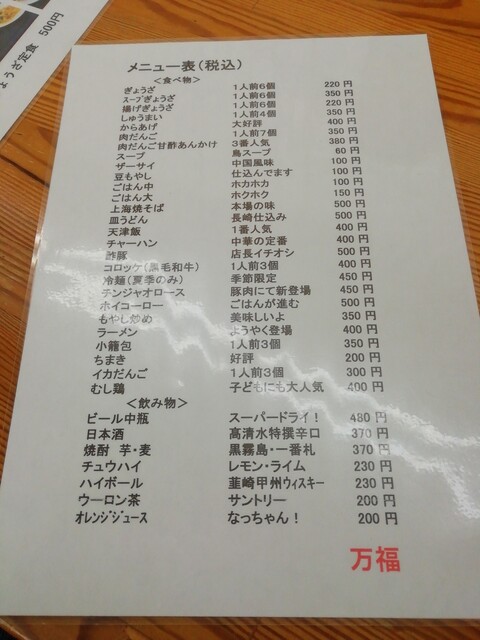 ょうざ定食 500円
メニュー表(税込)
<食べ物>
ぎょうざ 1人前6個 220 円
スープぎょうざ 1人前6個 350 円
揚げぎょうざ 1人前6個 220 円
しゅうまい 1人前4個 350 円
からあげ 大好評 400 円
肉だんご 1人前7個 350 円
肉だんご甘酢あんかけ 3番人気 380 円
スープ 鳥スープ 60 円
ザーサイ 中国風味 100 円
豆もやし 仕込んでます 100 円
ごはん中 ホカホカ 100 円
ごはん大 ホクホク 150 円
上海焼そば 本場の味 500 円
皿うどん 長崎仕込み 500 円
天津飯 1番人気 400 円
チャーハン 中華の定番 400 円
酢豚 店長イチオシ 500 円
コロッケ(黒毛和牛) 1人前3個 400 円
冷麺(夏季のみ) 季節限定 450 円
チンジャオロース 豚肉にて新登場 450 円
ホイコーロー ごはんが進む 500 円
もやし炒め 美味しいよ 350 円
ラーメン ようやく登場 400 円
小籠包 1人前3個 350 円
ちまき 好評 200 円
イカだんご 1人前3個 300 円
むし鶏 子どもにも大人気 400 円
<飲み物>
ビール中瓶 スーパードライ! 480 円
日本酒 高清水特撰辛口 370 円
焼酎 芋・麦 黒霧島・一番札 370 円
チュウハイ レモン・ライム 230 円
ハイボール 韮崎甲州ウィスキー 230 円
ウーロン茶 サントリー 200 円
オレンジジュース なっちゃん! 200 円
万福